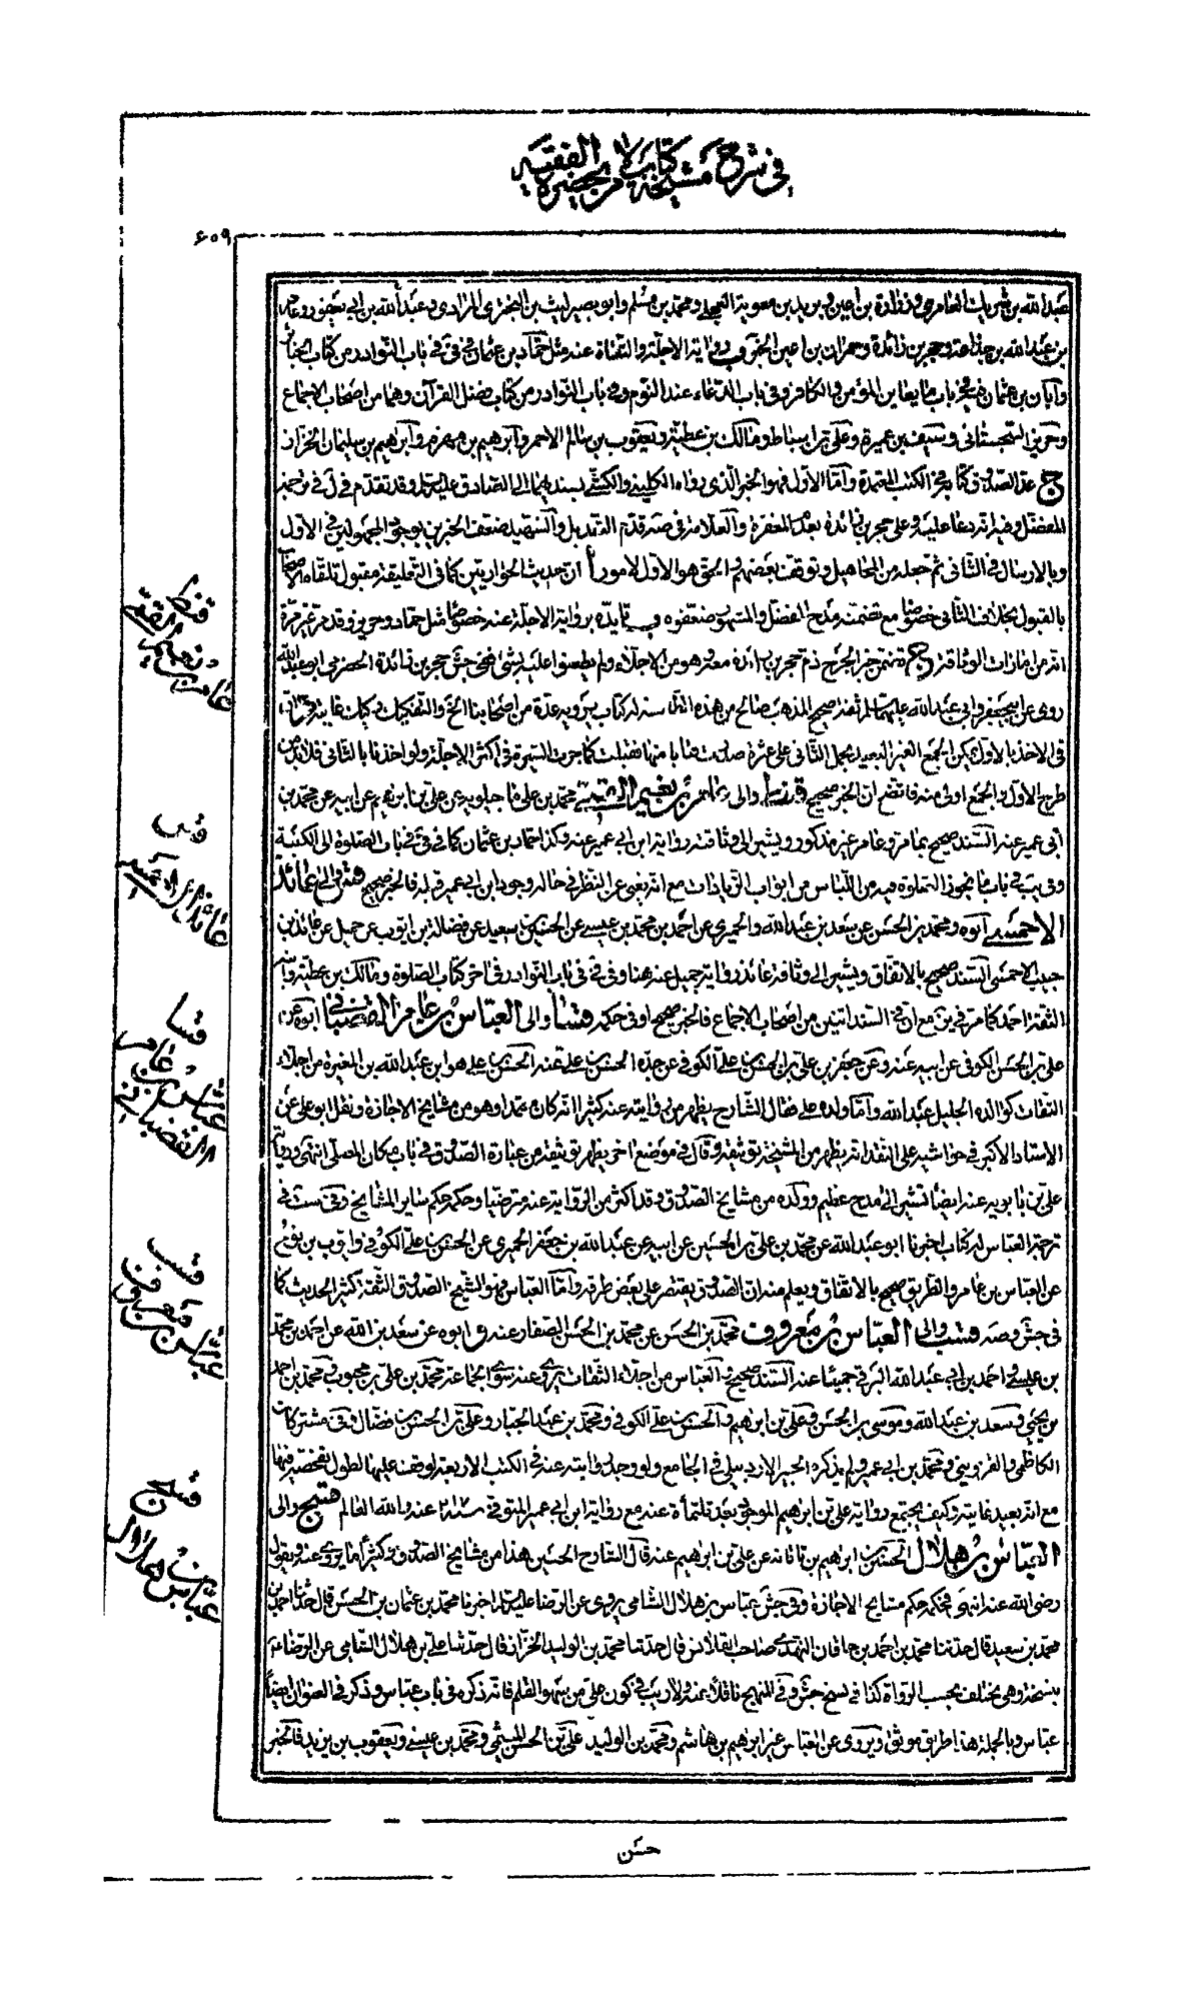 في شرح مشيخة كتاب من لا يحضره الفقيه
٦٠٩
عبد الله بن شريك العامري وزرارة بن اعين وبريد بن معوية العجلي ومحمد بن مسلم وابو بصير ليث بن البختري المرادي وعبد الله بن ابي يعفور وعامر
بن عبد الله بن جذاعة وحجر بن زائدة وحمران بن اعين الخبر وب رواية الاجلة والثقاة عنه مثل حماد بن عثمان في في باب النوادر من كتاب الجنائز
وابان بن عثمان فيه في باب ما يعاين المؤمن والكافر وفي باب الدعاء عند النوم وفي باب النوادر من كتاب فضل القرآن وهما من اصحاب الاجماع
وحريز السجستاني وسيف بن عميرة وعلي بن اسباط ومالك بن عطية ويعقوب بن سالم الاحمر وابرهيم بن مهزم وابرهيم بن سليمان الخزاز
ج عد الصدوق كتابه في الكتب المعتمدة وامّا الاول فهو الخبر الذي رواه الكليني والكشي بسنديهما الى الصادق عليه السلم وقد تقدم في
المفضل وفيه انه دعا عليه وعلى حجر بن زائدة بعدم المغفرة والعلامة في صه قدم التعديل والشهيد ضعف الخبرين بوجود المجهولين في الاول
وبالارسال في الثاني ثم جعله من المجاهيل وتوقف بعضهم والحق هو الاول لامور أ ان حديث الحواريين كما في التعليقة مقبول تلقاه الاصحاب
بالقبول بخلاف الثاني خصوصا مع تضمنه مدح المفضل والمشهور ضعفوه ب تأيده برواية الاجلة عنه خصوصا مثل حماد وحريز وقد مر غير مرة
انه من امارات الوثاقة ج تضمن خبر الجرح ذم حجر بن زائدة معه وهو من الاجلاء ولم يطعنوا عليه بشئ ففي جش حجر بن زائدة الحضرمي ابو عبد الله
روى عن ابي جعفر وابي عبد الله عليهما السلم ثقة صحيح المذهب صالح من هذه الطائفة له كتاب يرويه عدة من اصحابنا الخ والتفكيك ركيك غايته
في الاخذ بالاول يمكن الجمع الغير البعيد بحمل الثاني على عثرة صدرت منه تاب منها فقبلت كما جرت السيرة في اكثر الاجلة ولو اخذنا بالثاني فلا بد من
طرح الاول والجمع اولى منه فاتضح ان الخبر صحيح قنط والى عامر بن نعيم القمي محمد بن علي ماجيلويه عن علي بن ابرهيم عن ابيه عن محمد بن
ابي عمير عنه السند صحيح بما مر وعامر غير مذكور ويشير الى وثاقته رواية ابن ابي عمير عنه وكذا حماد بن عثمان كما في في باب الصلوة الى الكعبة
وفي يب في باب ما يجوز الصلوة فيه من اللباس من ابواب الزيادات مع انه يغني عن النظر في حاله وجود ابن ابي عمير قبله فالخبر صحيح قس والى عائذ
الاحمسي ابوه ومحمد بن الحسن عن سعد بن عبد الله والحميري عن احمد بن محمد بن عيسى عن الحسين بن سعيد عن فضالة بن ايوب عن جميل عن عائذ بن
حبيب الاحمسي السند صحيح بالاتفاق ويشير الى وثاقة عائذ رواية جميل عنه هنا وفي في في باب النوادر في اخر كتاب الصلوة ومالك بن عطية
الثقة احمد كما مر في مع ان في السند اثنين من اصحاب الاجماع فالخبر صحيح او في حكمه قسا والى العباس بن عامر القصباني ابوه عن
علي بن الحسن الكوفي عن ابيه عنه وعن جعفر بن علي بن الحسن بن علي الكوفي عن جده الحسن بن علي عنه الحسن بن علي هو ابن عبد الله بن المغيرة من اجلاء
الثقات كوالده الجليل عبد الله وامّا ولده علي فقال الشارح يظهر من روايته عنه كثيرا انه كان معتمدا وهو من مشايخ الاجازة ونقل ابو علي عن
الاستاد الاكبر في حواشيه على النقد انه يظهر من المشيخة توثيقه وقال في موضع اخر يظهر توثيقه من عبارة الصدوق في باب مكان المصلى انتهى
علي بن بابويه عنه ايضا تشير الى مدح عظيم وولده من مشايخ الصدوق وقد اكثر من الرواية عنه مترضيا وحكمه حكم ساير المشايخ وفي ست في
ترجمة العباس له كتاب اخبرنا ابو عبد الله عن محمد بن علي بن الحسين عن ابيه عن عبد الله بن جعفر الحميري عن الحسن بن علي الكوفي وايوب بن نوح
عن العباس بن عامر والطريق صحيح بالاتفاق ويعلم منه ان الصدوق يقتصر على بعض طرقه وامّا العباس فهو الشيخ الصدوق الثقة كثير الحديث كما
في جش وصه قسب والى العباس بن معروف محمد بن الحسن عن محمد بن الحسن الصفار عنه وابوه عن سعد بن الله عن احمد بن محمد
بن عيسى واحمد بن ابي عبد الله البرقي جميعا عنه السند صحيح والعباس من اجلاء الثقات يروي عنه سوى الجماعة محمد بن علي بن محبوب ومحمد بن احمد
بن يحيى وسعد بن عبد الله وموسى بن الحسن وعلي بن ابرهيم والحسن بن علي الكوفي ومحمد بن عبد الجبار وعلي بن الحسن بن فضال وفي مشتركات
الكاظمي والقزويني ومحمد بن ابي عمير ولم يذكره الحبر الاردبيلي في الجامع ولو وجد روايته عنه في الكتب الاربعة لوقف عليها لطول تفحصه فيها
مع انه بعيد غايته وكيف يجتمع رواية علي بن ابرهيم الموجود بعد ثلثمأة عنه مع رواية ابن ابي عمير المتوفي سنة ٢١٧ عنه والله العالم قسج والى
العباس بن هلال الحسين بن ابرهيم بن ناتانه عن علي بن ابرهيم عنه قال الشارح الحسين هذا من مشايخ الصدوق وكثيرا ما يروي عنه ويقول
رضي الله عنه انتهى فحكمه حكم مشايخ الاجازة وفي جش عباس بن هلال الشامي يروي عن الرضا عليه السلم اخبرنا محمد بن عثمان بن الحسن قال حدثنا احمد بن
محمد بن سعيد قال حدثنا محمد بن احمد بن خاقان النهدي صاحب القلانس قال حدثنا محمد بن الوليد الخزاز قال حدثنا علي بن هلال الشامي عن الرضا ع
بنسخة وهي يختلف بحسب الرواة كذا في نسخ جش وفي المنهج ناقلا عنه ولا ريب في كون علي من سهو القلم فانه ذكره في باب عباس وذكر في العنوان ايضا
عباس وبالجملة هذا طريق موثق ويروي عن العباس غير ابرهيم بن هاشم ومحمد بن الوليد علي بن الحسن الميثمي ومحمد بن عيسى ويعقوب بن يزيد فالخبر
حسن
قنط
عامر بن نعيم القمي
قس
عائذ الاحمسي
قسا
عباس بن عامر
القصباني
قسب
عباس بن معروف
قسج
عباس بن هلال